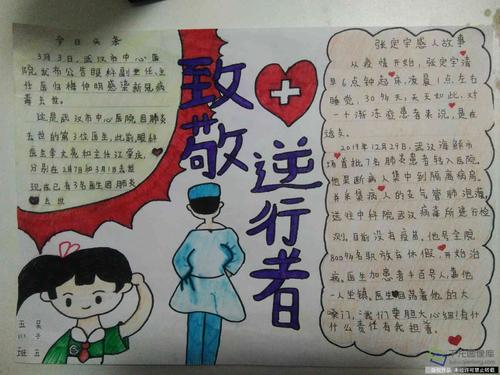 今日头条
3月3日,武汉市中心医
院发布公告眼科副主任、主
任医师梅仲明感染新冠病
毒去世。
这是武汉市中心医院因肺炎
去世的第3位医生,此前,眼科
医生李文亮和主任江学庆,
分别在2月7日和3月1日去世
现在已有3名医生因肺炎
去世
致敬
逆行者
张定宇感人故事
从疫情开始,张定宇清
日6点钟起床,凌晨1点左右
睡觉,30多天,天天如此,对
一个渐冻症患者来说,是在
透支。
2019年12月29日,武汉海鲜市
场首批7名肺炎患者转入医院。
他果断病人集中到隔离病房,
并采集病人的支气管肺泡灌,
送往中科院武汉病毒所进行检
测。目前没有疫苗,他号全院
800多名职放弃休假,开始治
病。医生加患者千百号人,靠他
一人坐镇。医生回荡着他的大
嗓门,“我们要胆大心细!有什
什么责任有我担着。
五
班